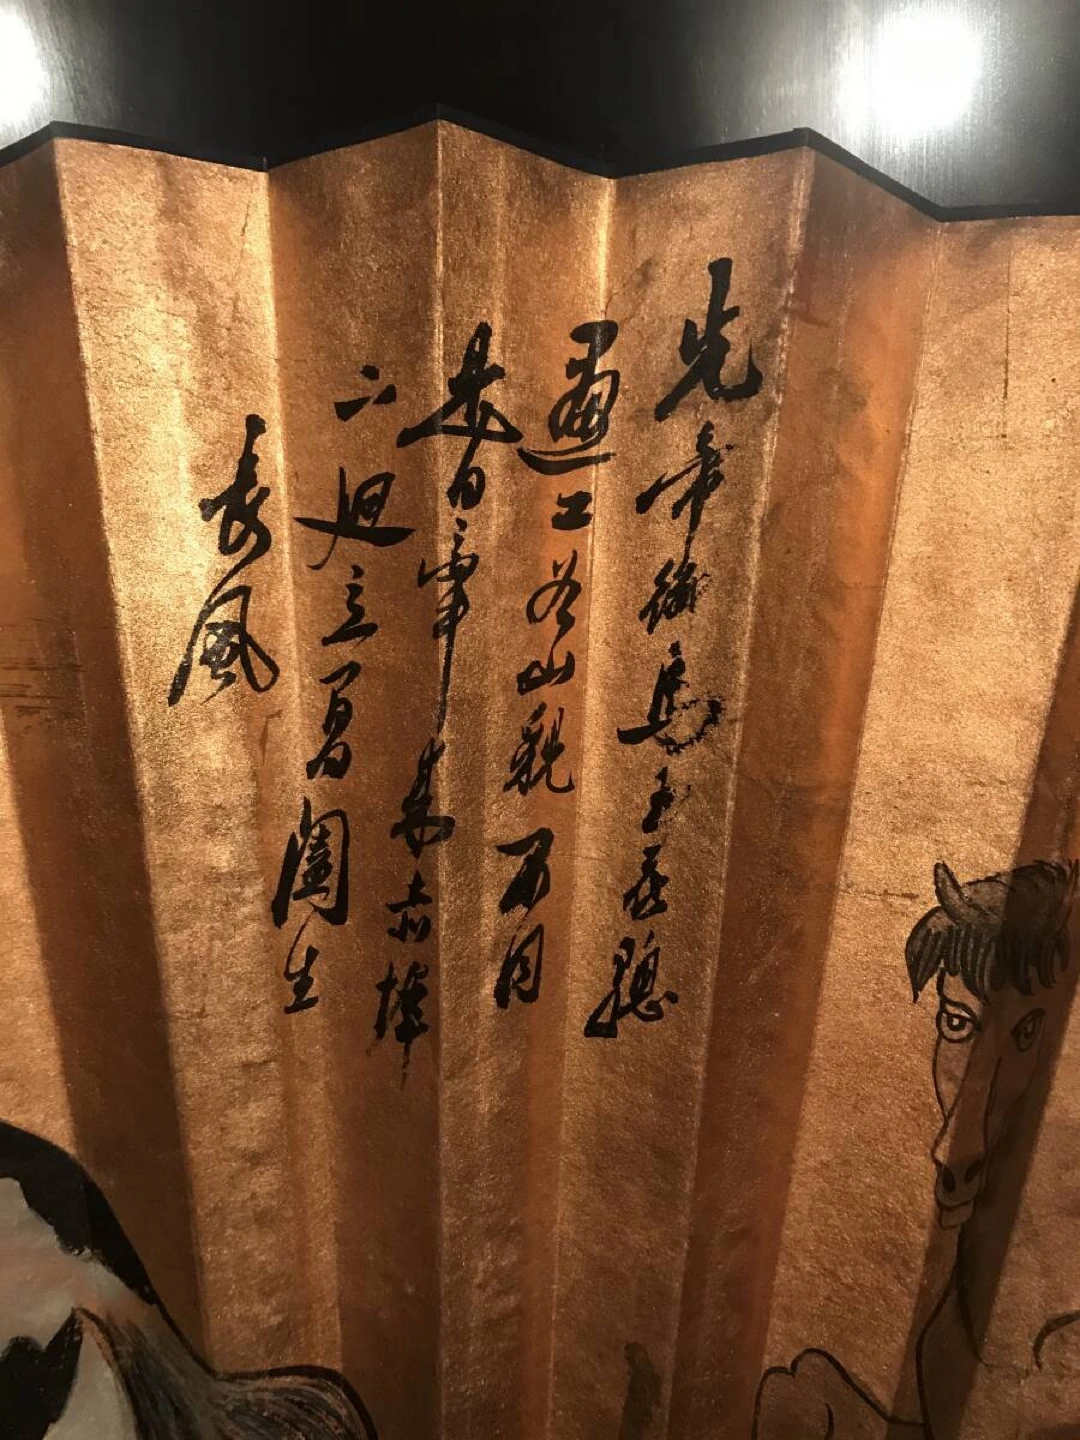 先帝御馬玉花驄
畫工如山貌不同
是日牽來赤墀
下迥立閶闔生
長風